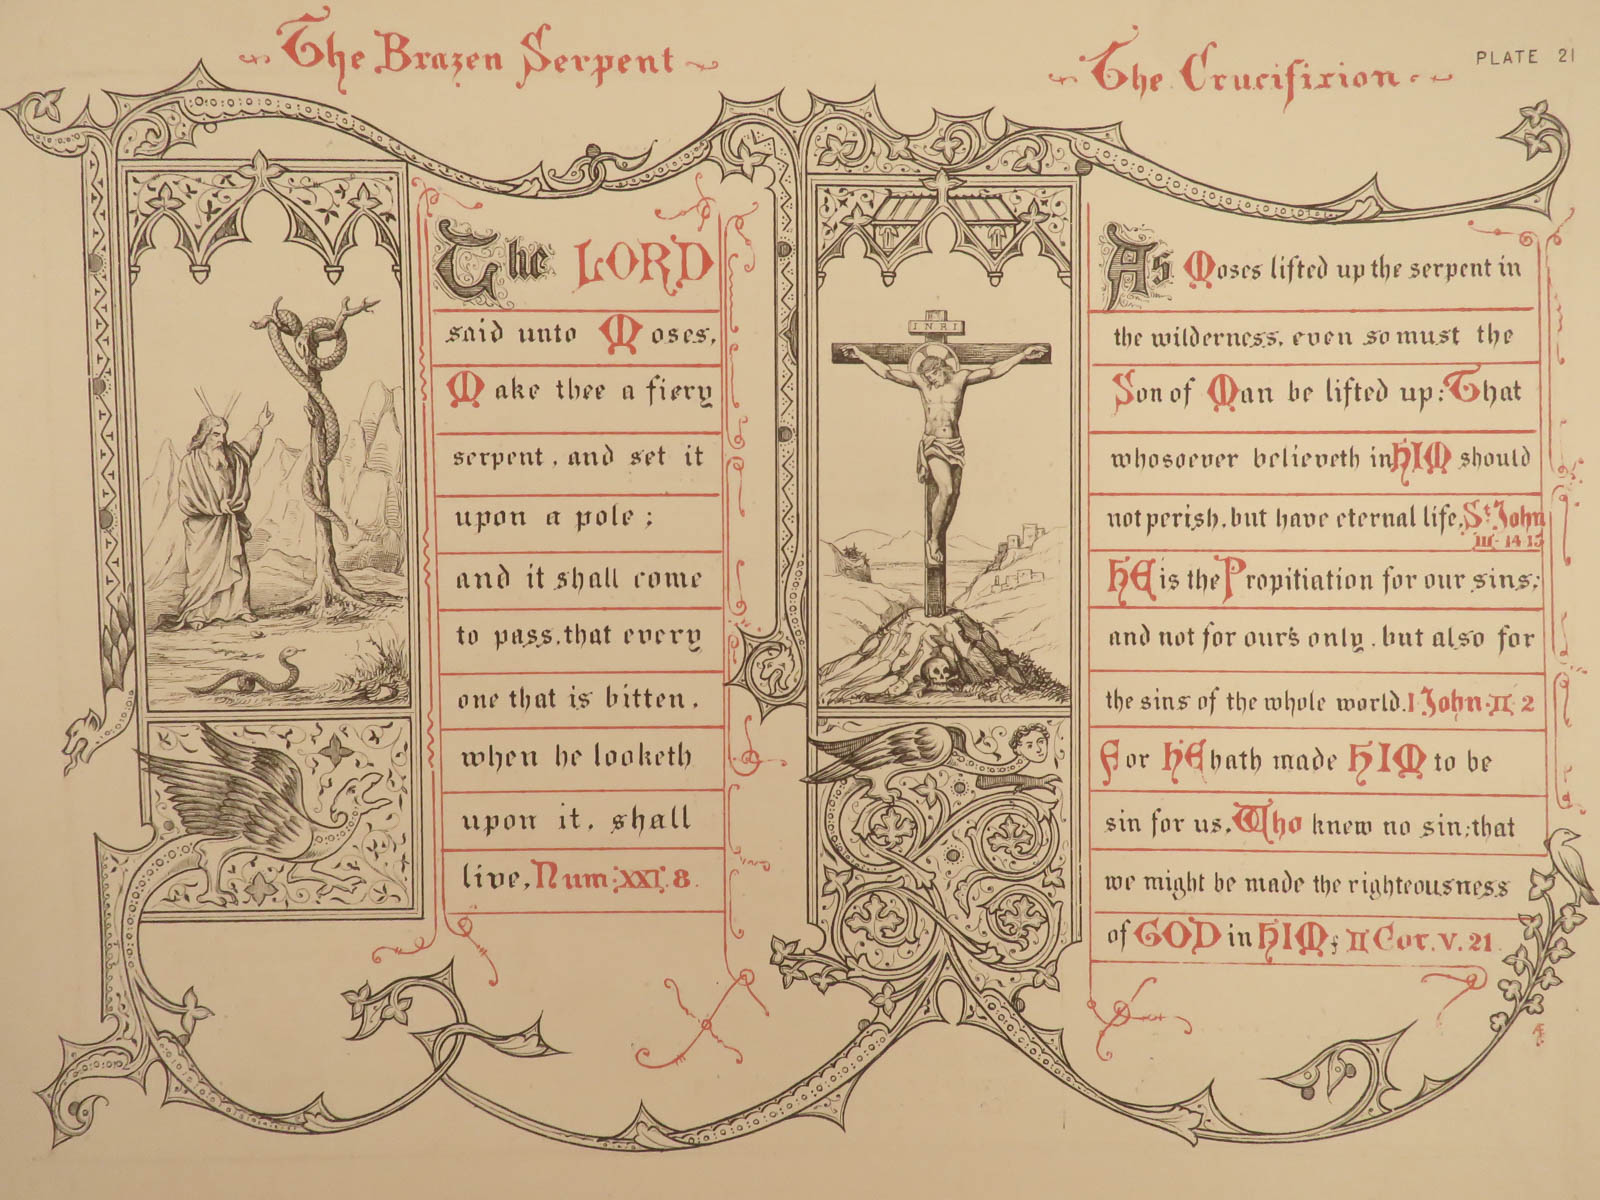 The Brazen Serpent
The Crucifixion
PLATE 21
The LORD
said unto Moses,
Make thee a fiery
serpent, and set it
upon a pole;
and it shall come
to pass, that every
one that is bitten,
when he looketh
upon it, shall
live, Num: XXI. 8.
INRI
As Moses lifted up the serpent in
the wilderness, even so must the
Son of Man be lifted up: That
whosoever believeth in HIM should
not perish, but have eternal life, St. John
III. 14. 15
HE is the Propitiation for our sins;
and not for our's only, but also for
the sins of the whole world. I John. II. 2
For HE hath made HIM to be
sin for us, Who knew no sin; that
we might be made the righteousness
of GOD in HIM; II Cor. V. 21.